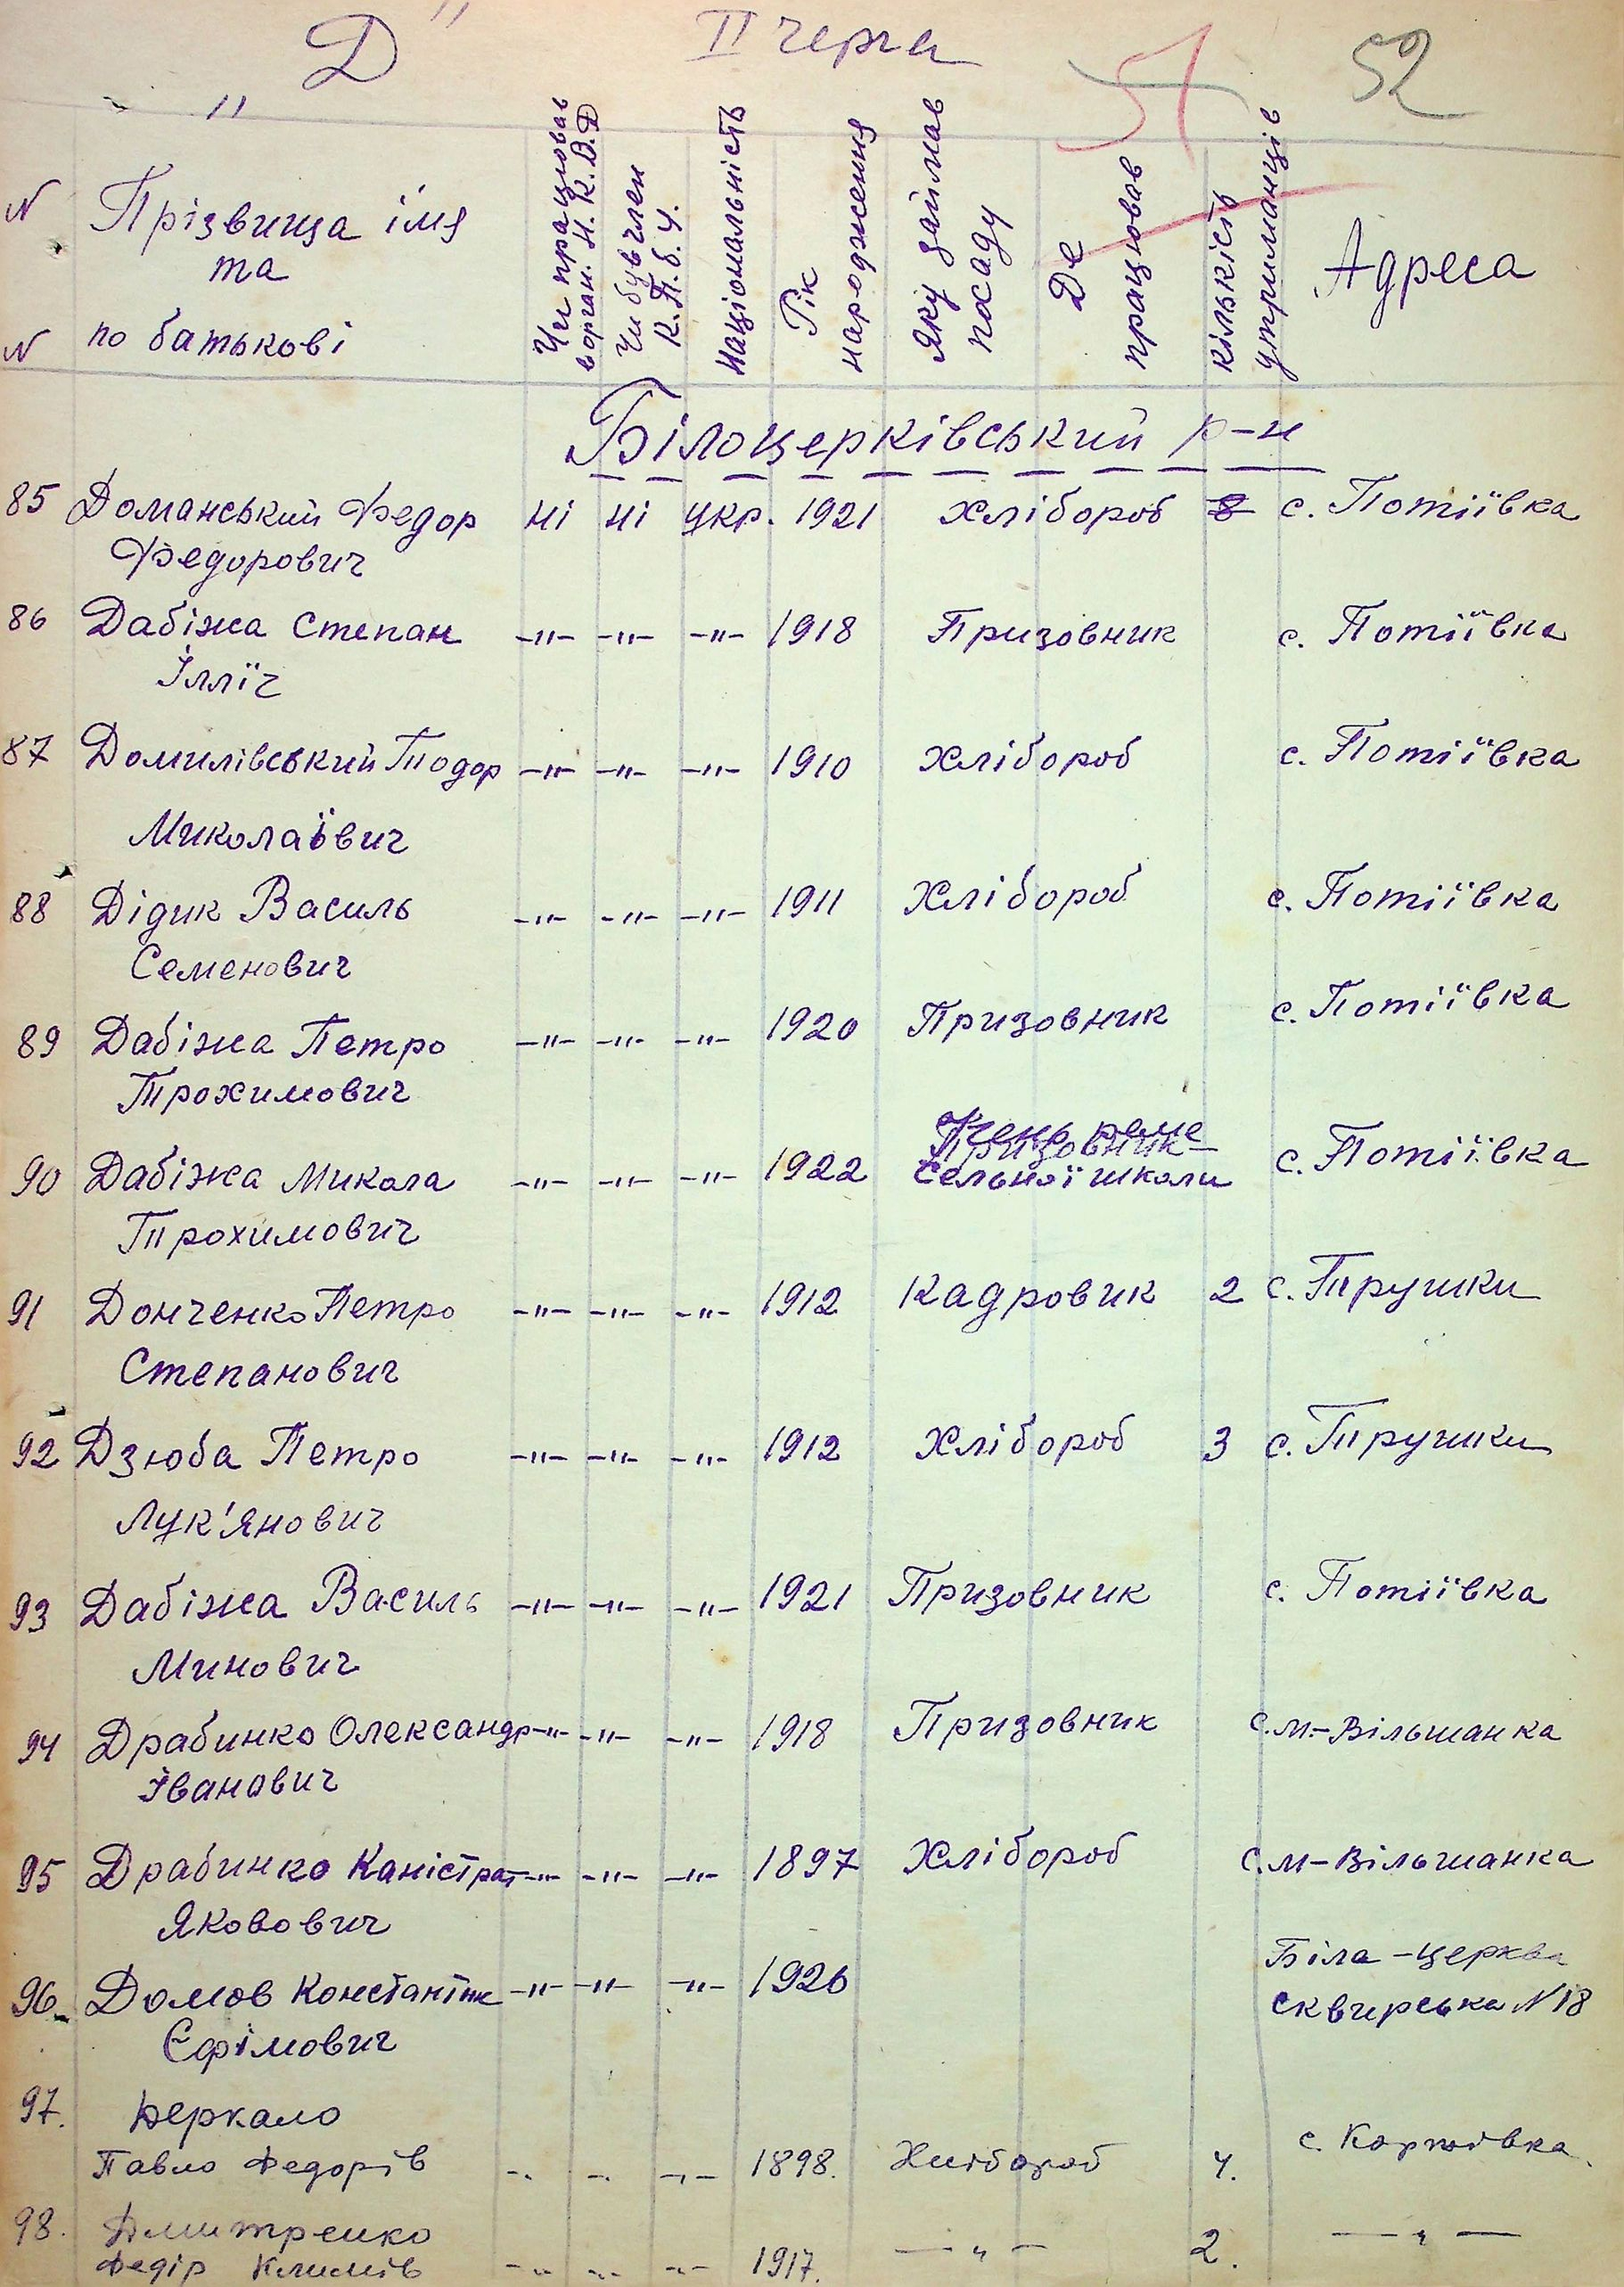 Д
II черга
51 52
N Прізвища імя
та
N по батькові
Чи працював
в орган. Н.К.В.Д
Чи був член
К.П.б.У.
Національність
Рік
народження
Яку займав
посаду
Де
працював
кількість
утриманців
Адреса
Білоцерківський р-н
85 Доманський Федор ні ні укр. 1921 Хлібороб 8 с. Потіївка
Федорович
86 Дабіжа Степан -"- -"- -"- 1918 Призовник с. Потіївка
Ілліч
87 Домилівський Тодор -"- -"- -"- 1910 Хлібороб с. Потіївка
Миколаївич
88 Дідик Василь -"- -"- -"- 1911 Хлібороб с. Потіївка
Семенович
89 Дабіжа Петро -"- -"- -"- 1920 Призовник с. Потіївка
Трохимович
90 Дабіжа Микола -"- -"- -"- 1922 Призовник с. Потіївка
сельної школи
Трохимович
91 Донченко Петро -"- -"- -"- 1912 Кадровик 2 с. Трушки
Степанович
92 Дзюба Петро -"- -"- -"- 1912 Хлібороб 3 с. Трушки
Лук'янович
93 Дабіжа Василь -"- -"- -"- 1921 Призовник с. Потіївка
Минович
94 Драбинко Олександр -"- -"- -"- 1918 Призовник с.м-Вільшанка
Іванович
95 Драбинко Каністрат -"- -"- -"- 1897 Хлібороб с.м-Вільшанка
Яковович
96. Домов Константин -"- -"- -"- 1926 Біла-церква
Єфімович Сквирська N 18
97. Деркало
Павло Федорів -"- -"- -"- 1898. Хлібороб 4. с.
98. Дмитренко
Федір Климів -"- -"- -"- 1917. -"- 2. -"-